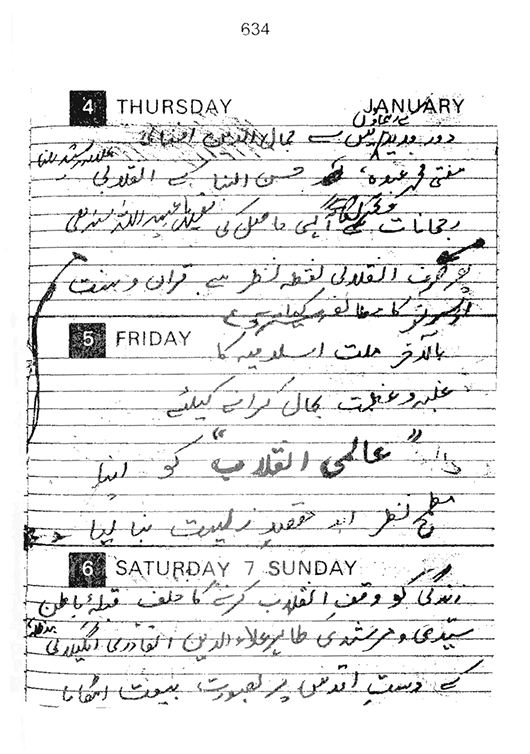 634
4 THURSDAY JANUARY
دور جدید میں سے جمال الدین افغانی
مفتی محمد عبدہ، حسن البنا کے انقلابی
رجحانات سے آگہی حاصل کی عبید اللہ سندھی
پھر صرف انقلابی نقطہ نظر سے قرآن و سنت
کا مطالعہ کیا
5 FRIDAY
بالآخر ملت اسلامیہ کا
غلبہ و عظمت بحال کرانے کیلئے
"عالمی انقلاب" کو اپنا
مطمح نظر اور مقصدِ زیست بنا لیا
6 SATURDAY 7 SUNDAY
زندگی کو وقفِ انقلاب کرنے کا حلف قبلۂ باطن
سیدی و مرشدی طاہر علاءالدین القادری الگیلانی
کے دستِ اقدس پر بصورت بیعت اٹھایا